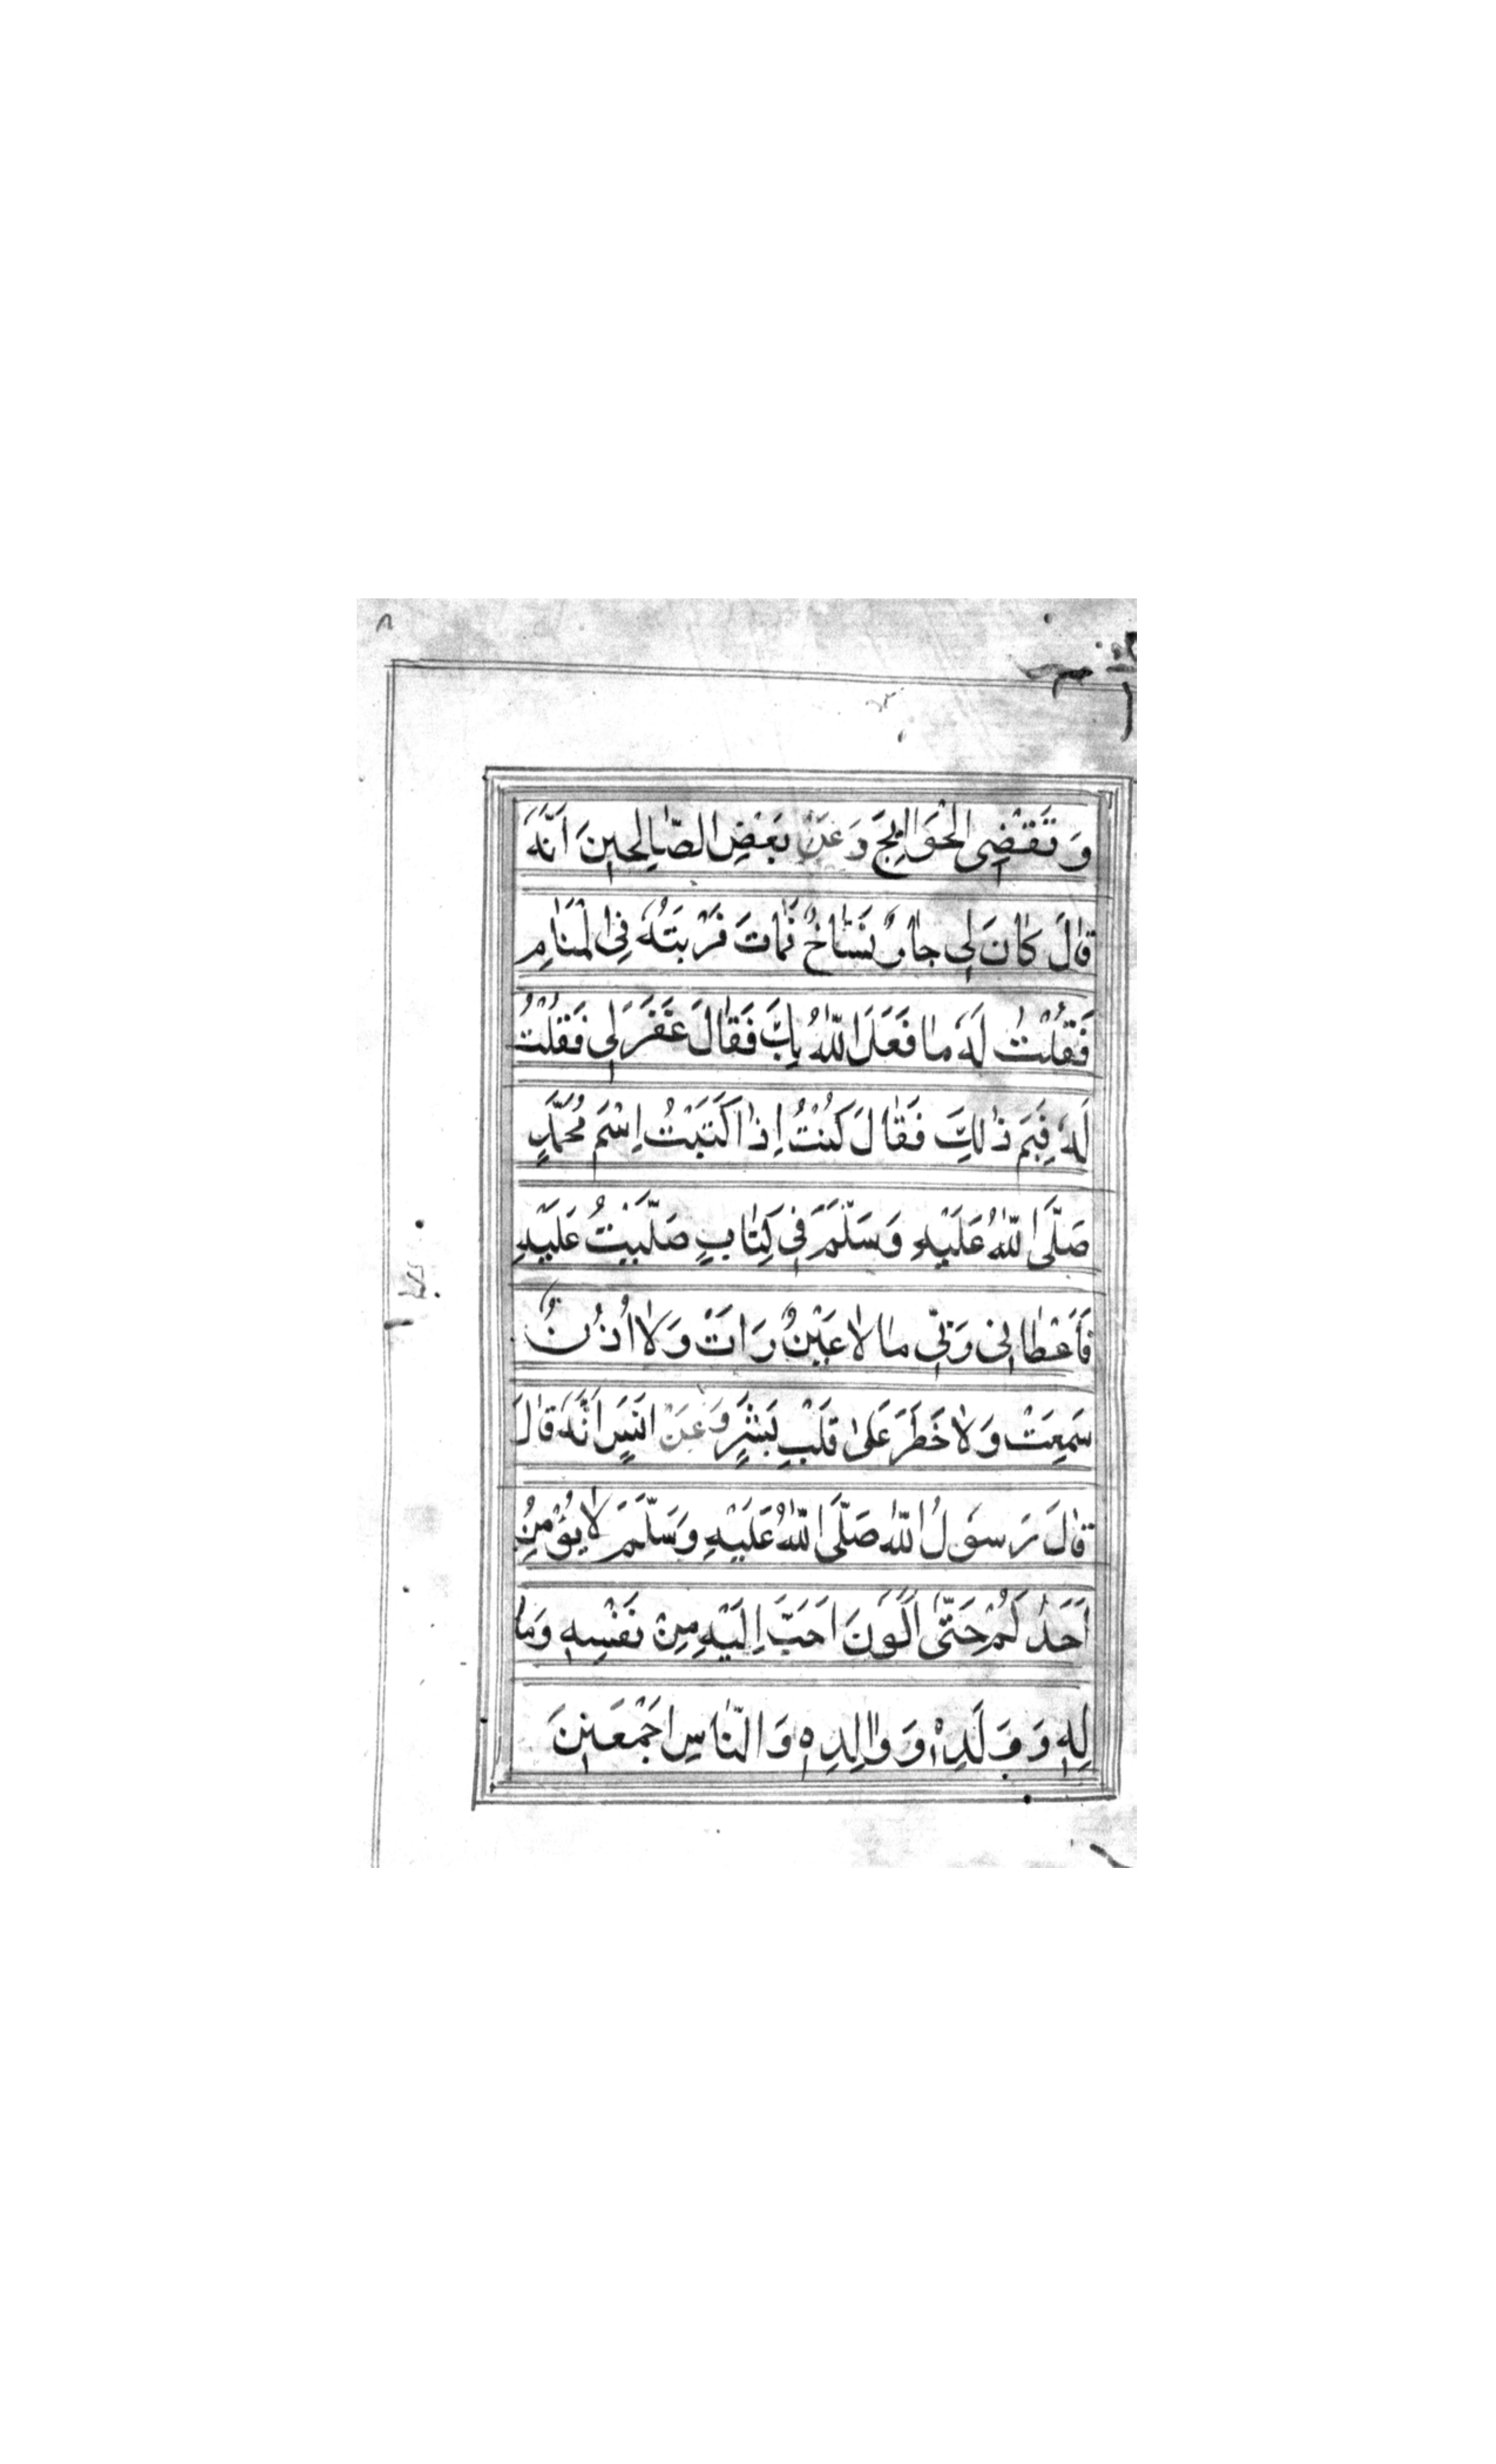 وَ تَقْضِى الْحَوَايِجَ وَعَنْ بَعْضِ الصَّالِحِينَ اَنَّهُ
قَالَ كَانَ لِى جَارٌ نَسَّاخٌ فَمَاتَ فَرَيْتُهُ فِى الْمَنَامِ
فَقُلْتُ لَهُ مَا فَعَلَ اللّٰهُ بِكَ فَقَالَ غَفَرَ لِى فَقُلْتُ
لَهُ فِبِمَ ذٰلِكَ فَقَالَ كُنْتُ اِذَا كَتَبْتُ اِسْمَ مُحَمَّدٍ
صَلَّى اللّٰهُ عَلَيْهِ وَسَلَّمَ فِى كِتَابٍ صَلَّيْتُ عَلَيْهِ
فَاَعْطَانِى رَبِّى مَا لَا عَيْنٌ رَاَتْ وَلَا اُذُنٌ
سَمِعَتْ وَلَا خَطَرَ عَلٰى قَلْبِ بَشَرٍ وَعَنْ اَنَسٍ اَنَّهُ قَالَ
قَالَ رَسُولُ اللّٰهِ صَلَّى اللّٰهُ عَلَيْهِ وَسَلَّمَ لَا يُؤْمِنُ
اَحَدُكُمْ حَتّٰى اَكُونَ اَحَبَّ اِلَيْهِ مِنْ نَفْسِهِ وَمَا
لِهِ وَ وَلَدِهِ وَ وَالِدِهِ وَالنَّاسِ اَجْمَعِينَ